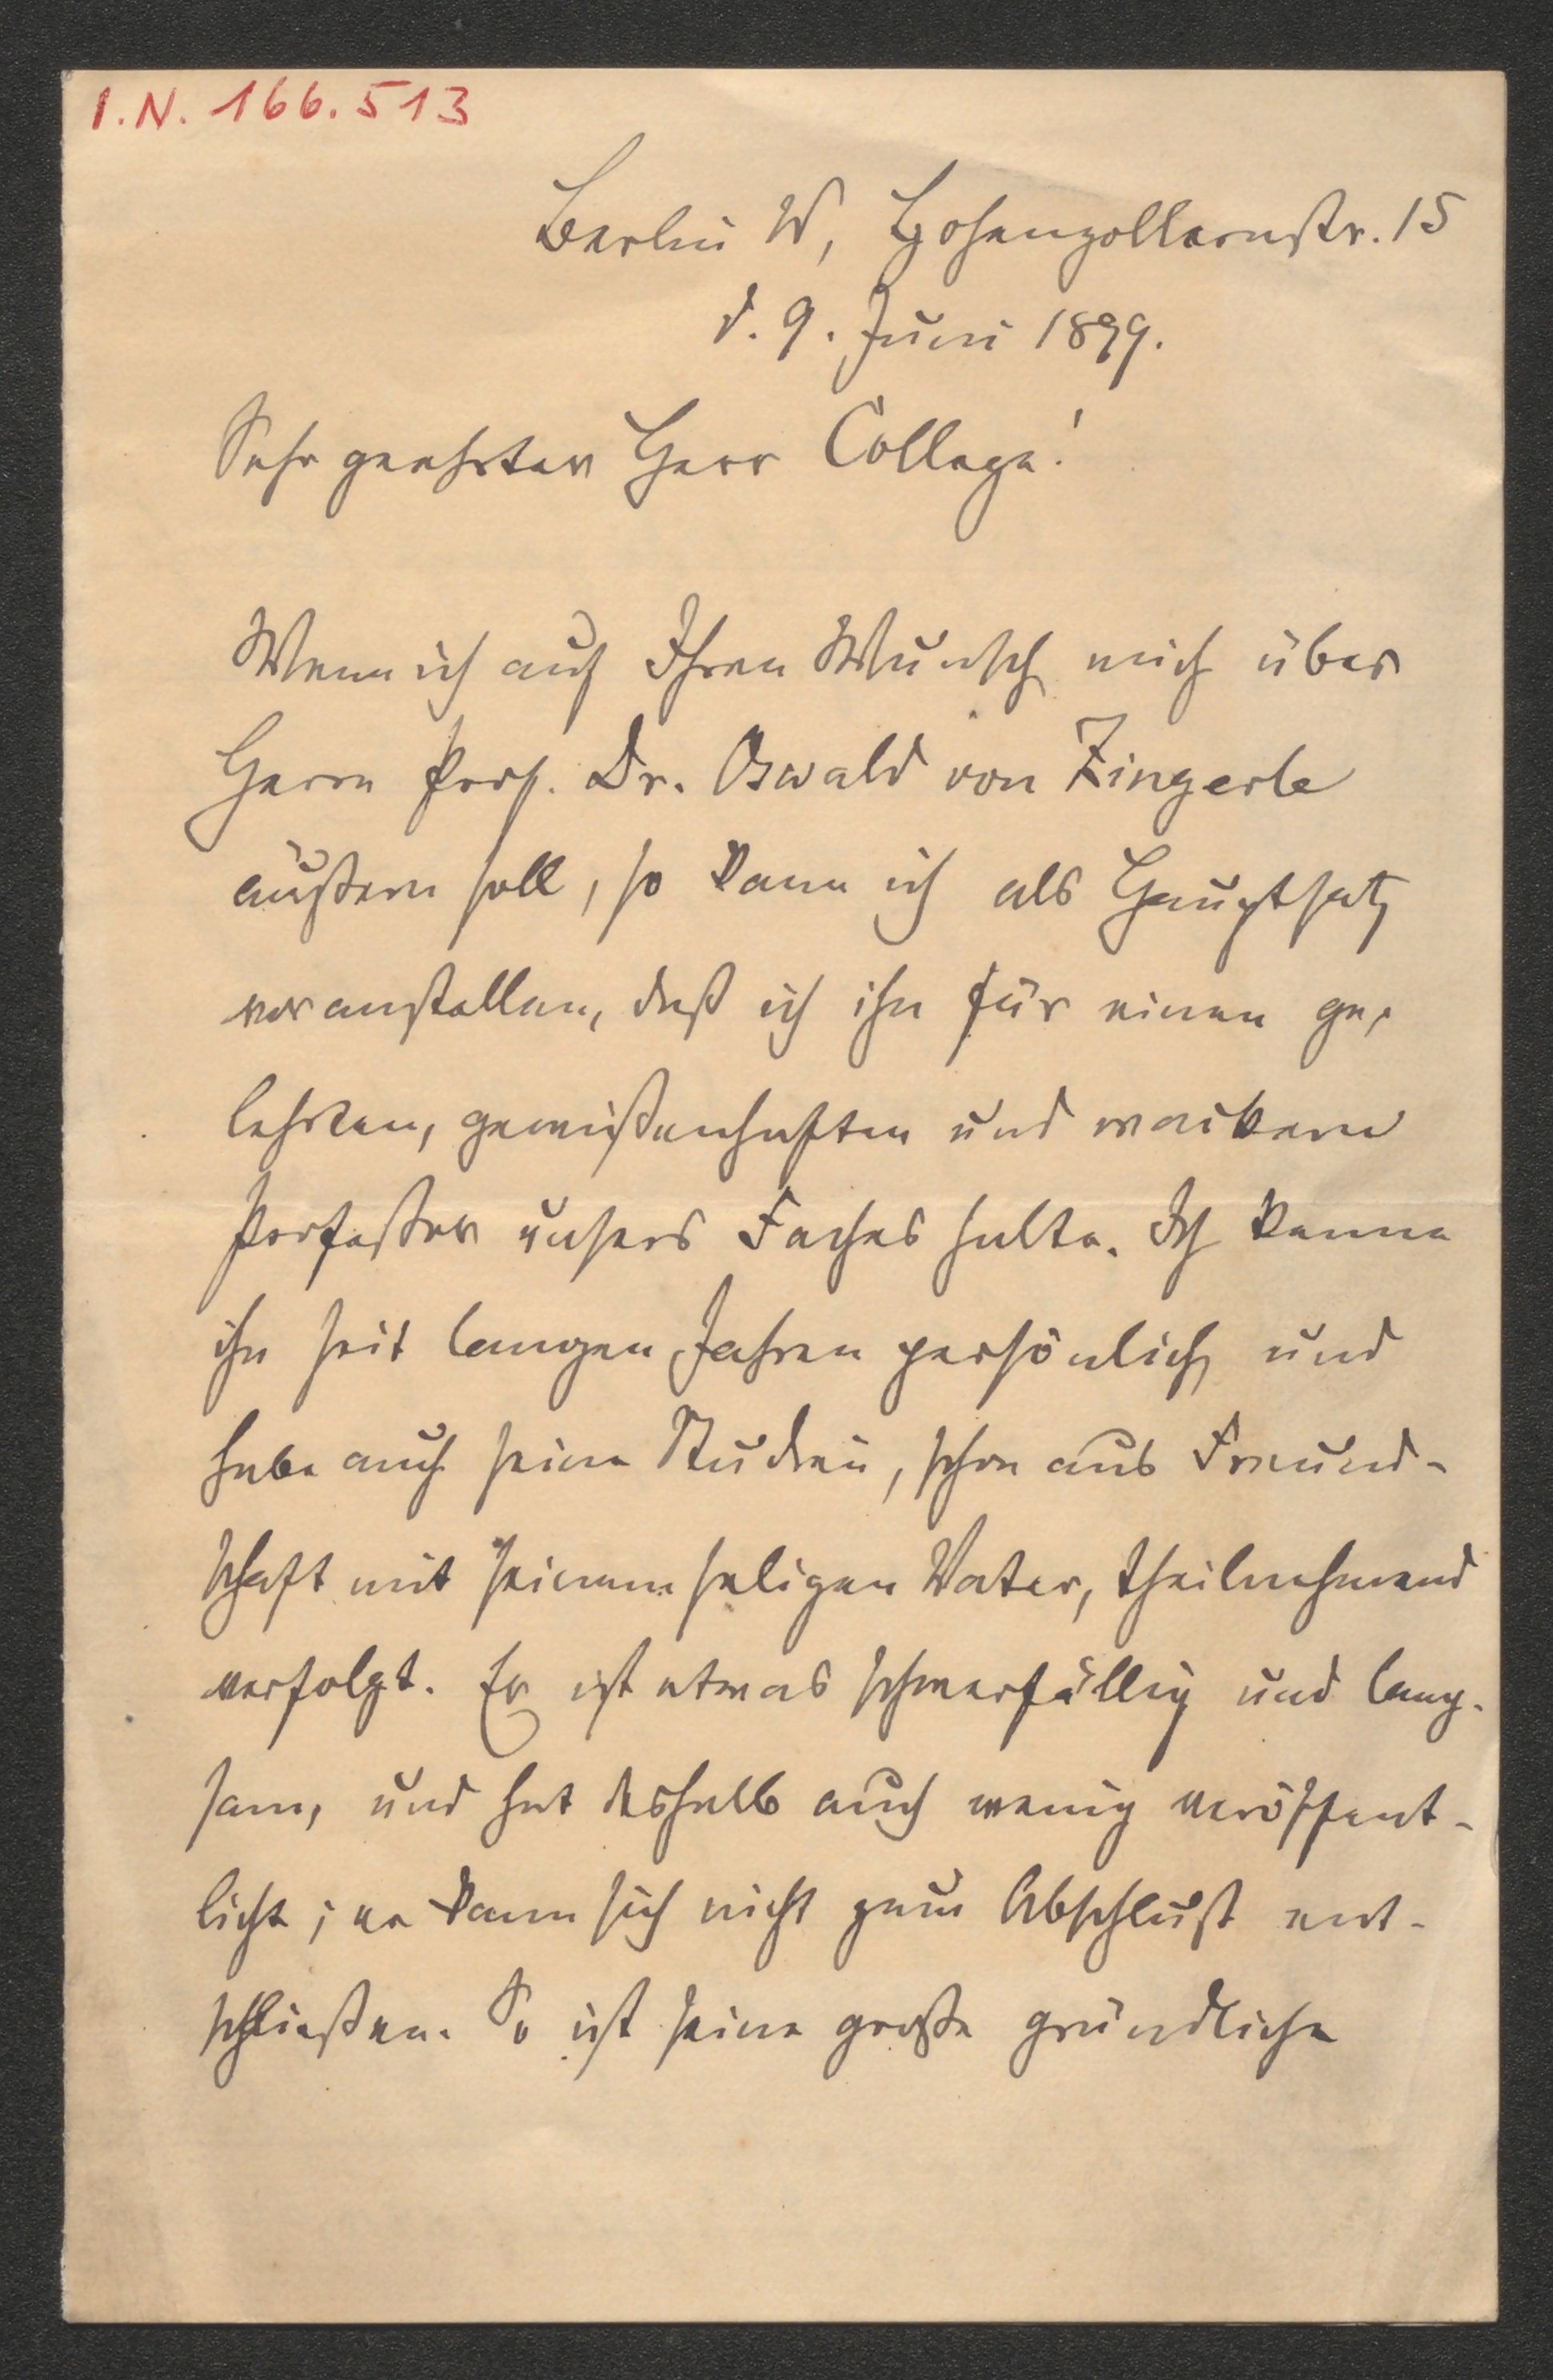 I.N. 166.513
Berlin W, Hohenzollernstr. 15
d. 9. Juni 1899.
Sehr geehrter Herr College!
Wenn ich auf Ihren Wunsch mich über
Herrn Prof. Dr. Oswald von Zingerle
äußern soll, so kann ich als Hauptsatz
voranstellen, daß ich ihn für einen ge-
lehrten, gewißenhaften und wackern
Profeßor unsers Faches halte. Ich kenne
ihn seit langen Jahren persönlich und
habe auch seine Studien, schon aus Freund-
schaft mit seinem seligen Vater, theilnehmend
verfolgt. Er ist etwas schwerfällig und lang-
sam, und hat deshalb auch wenig veröffent-
licht; er kann sich nicht zum Abschluß ent-
schließen. So ist seine große gründliche